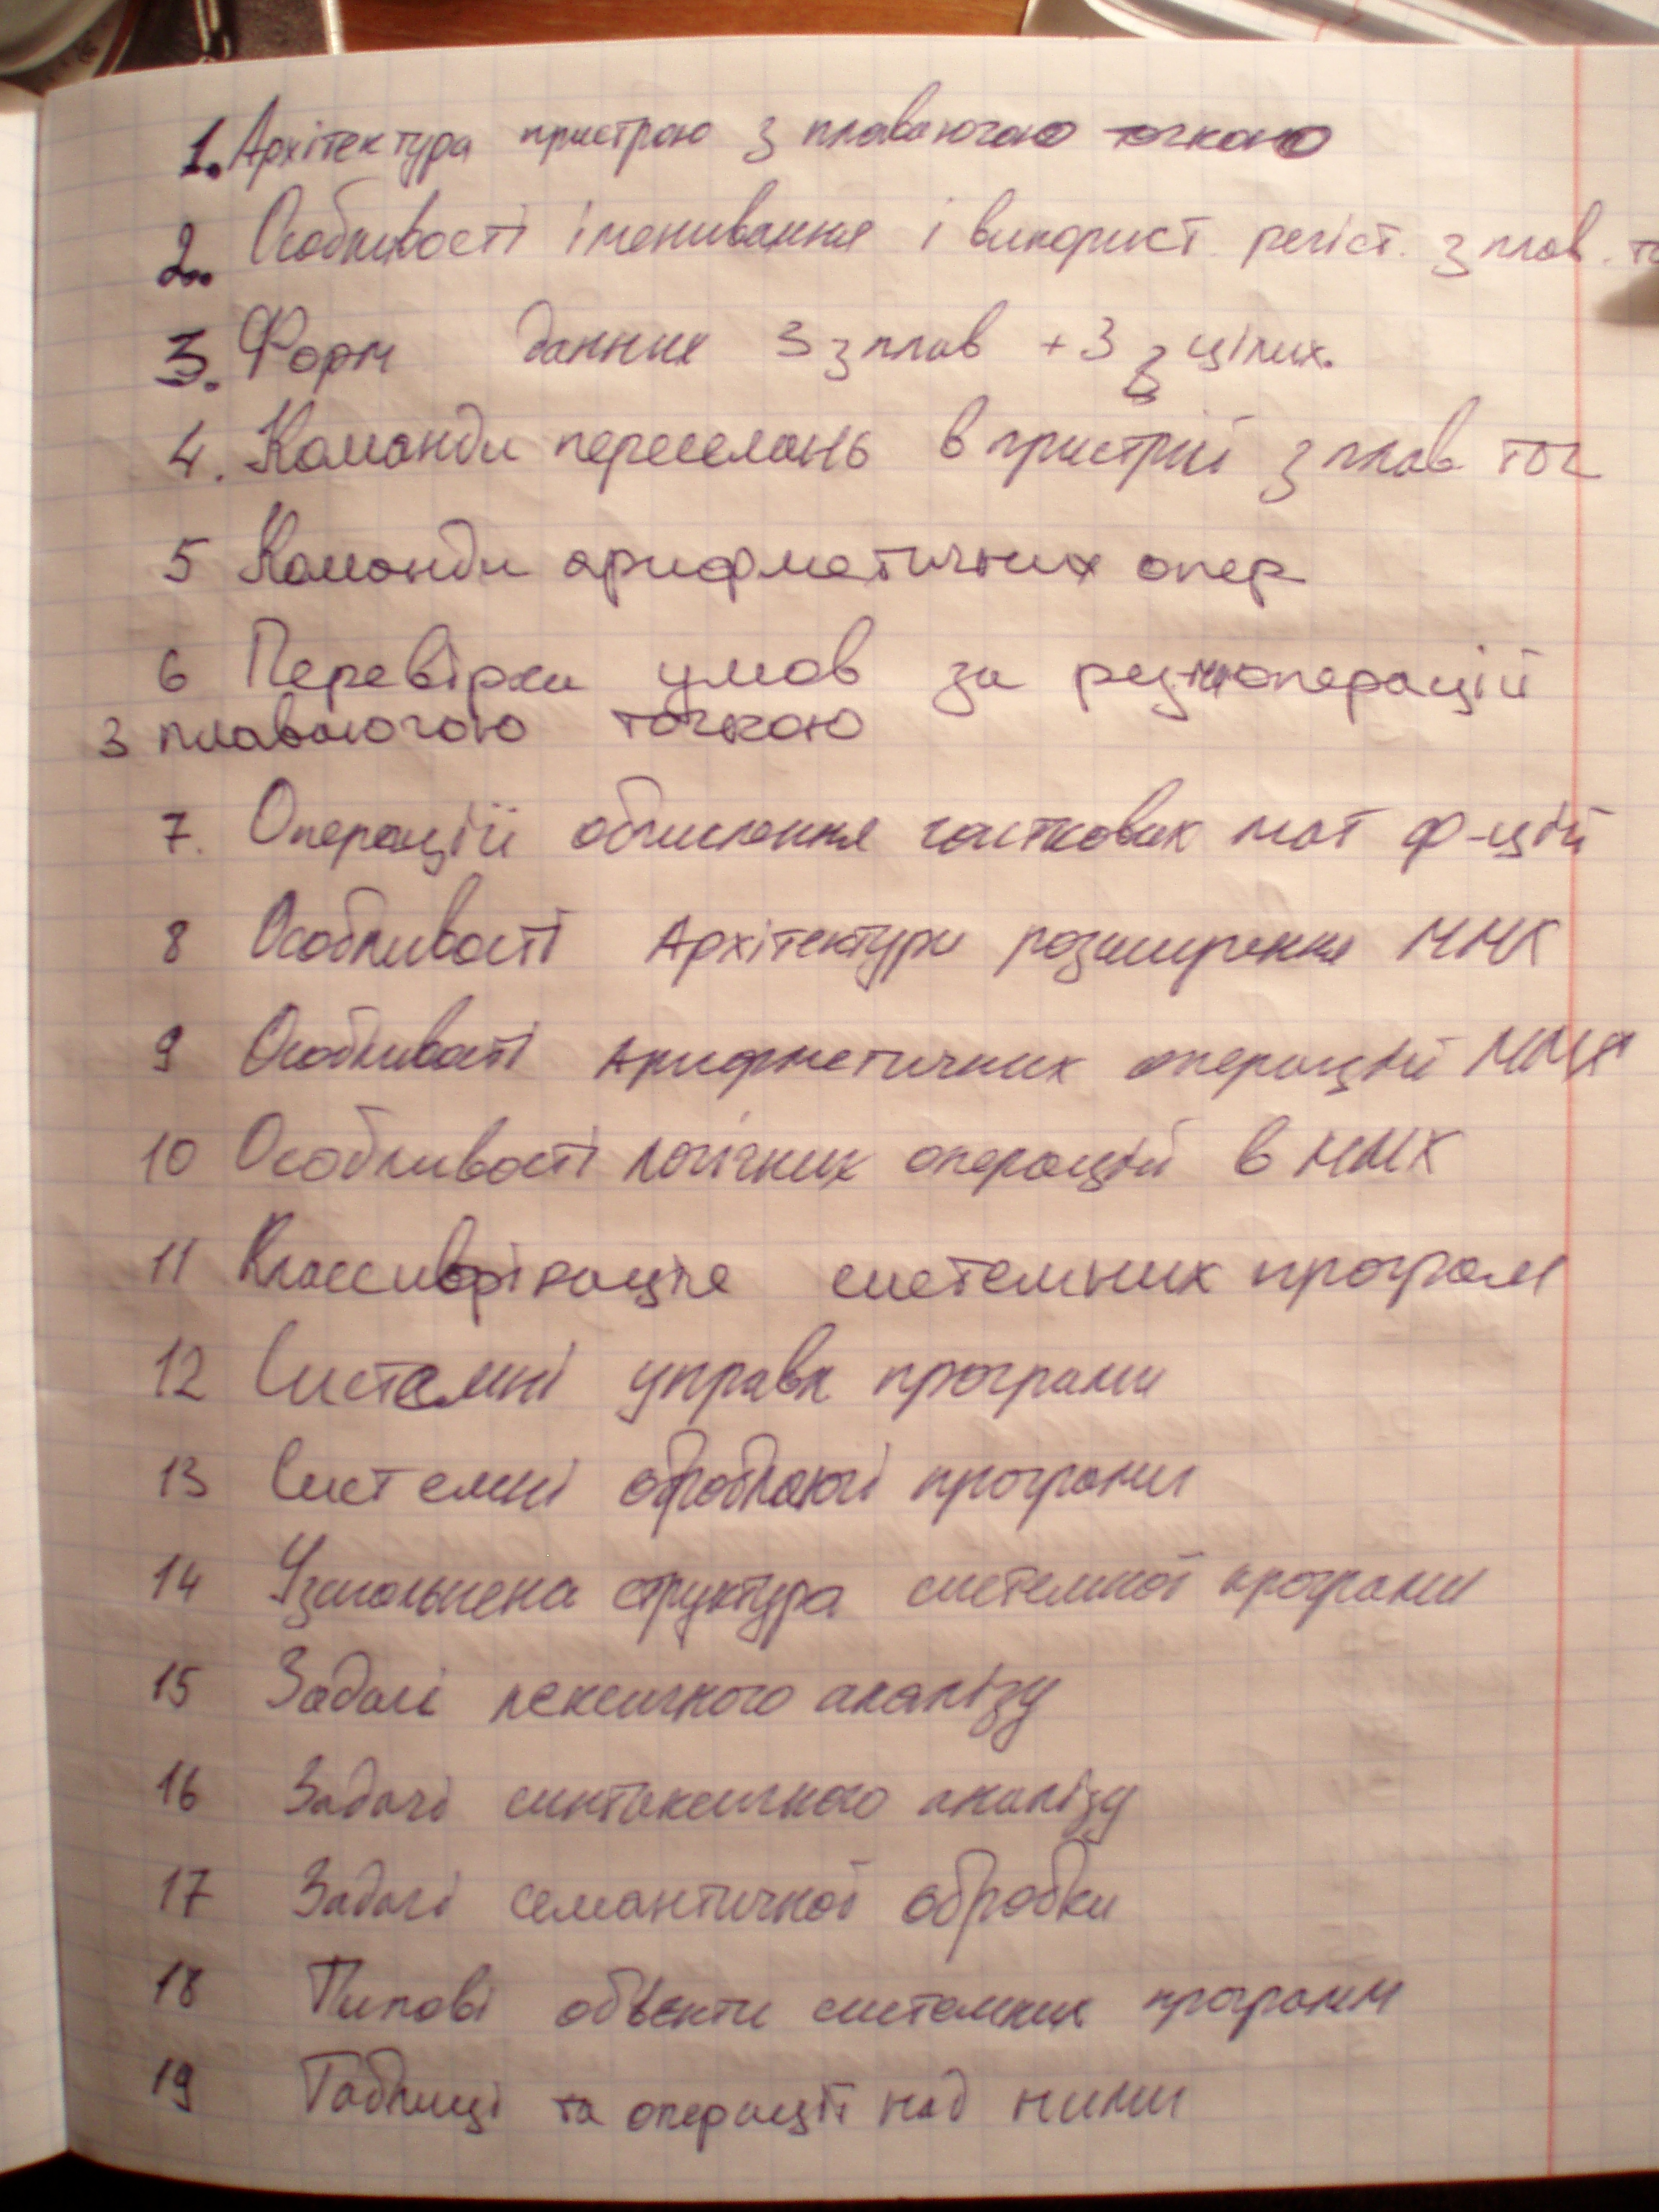 1. Архітектура пристрою з плаваючою точкою
2. Особливості іменивання і використ. регіст. з плав. то
3. Форм данних 3 з плав + 3 з цілих.
4. Команди переселань в пристрії з плав точ
5 Команди арифметичних опер
6 Перевірки умов за операцій
з плаваючою точкою
7. Операціїї обчислення часткових мат ф-цій
8 Особливості Архітектури розширення ММХ
9 Особливості арифметичних операцій ММХ
10 Особливості логічних операцій в ММХ
11 Классифікація системних програм
12 Системні управл програми
13 Системні обробляючі програми
14 Узагальнена структура системної програми
15 Задачі лексичного аналізу
16 Задачі синтаксичного аналізу
17 Задачі семантичної обробки
18 Типові об'єкти системних программ
19 Таблиці та операції над ними